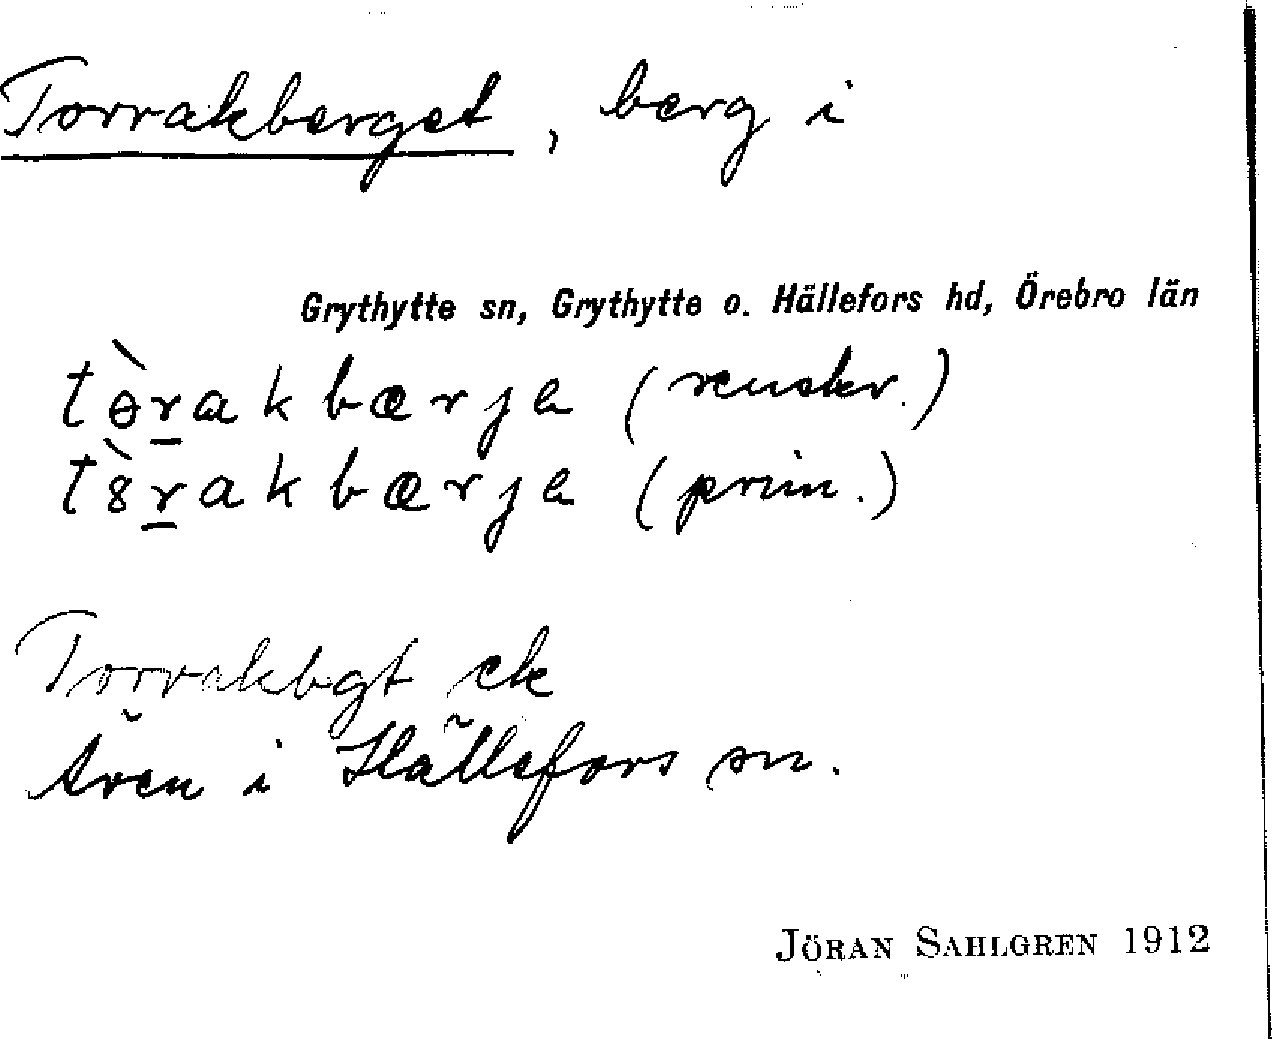 Torrakberget, berg i
Grythytte sn, Grythytte o. Hällefors hd, Örebro län
tɵ̀r̲akbærja (renskr.)
tè̀r̲akbærja (prim.)
Torrakbgt ek
Även i Hällefors sn.
JÖRAN SAHLGREN 1912